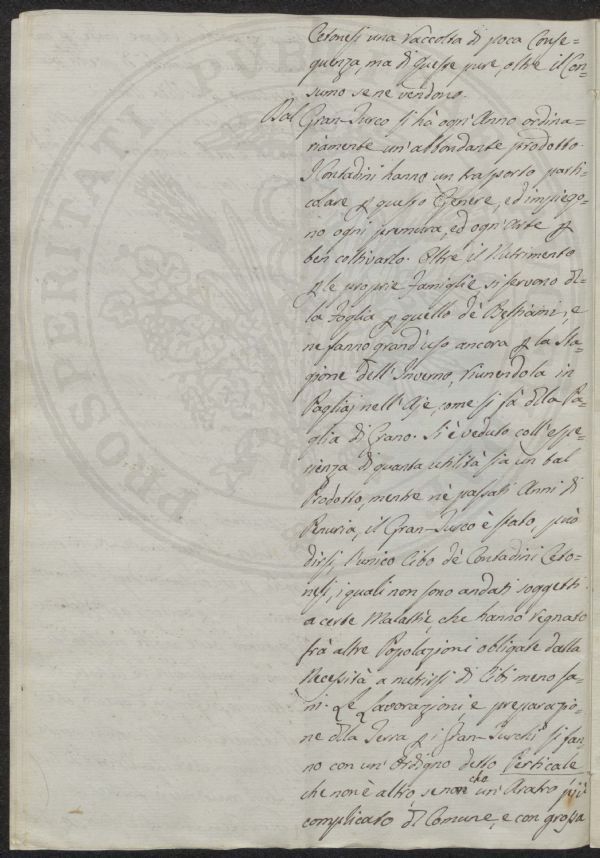 Cetonesi una raccolta di poca Conse-
guenza, ma di queste pure, oltre il Con-
sumo se ne vendono.
Dal Gran-Turco si hà ogn'Anno ordina-
riamente un'abbondante prodotto.
I Contadini hanno un trasporto parti-
colare p questo Genere, ed impiego-
no ogni premura, ed ogn'arte p
ben coltivarlo. Oltre il Nutrimento
p le proprie Famiglie si servono del-
la Foglia p quello dè Bestiami, e
ne fanno grand'uso ancora p la Sta-
gione dell'Inverno, riunendola in
Pagliaj nell'Aje, come si fà della Pa-
glia di Grano. Si è veduto coll'espe-
rienza di quanta utilità sia un tal
Prodotto, mentre nè passati Anni di
Penuria, il Gran-Turco è stato, può
dirsi, l'unico Cibo dè Contadini Ceto-
nesi, i quali non sono andati soggetti
a certe Malattie, che hanno regnato
frà altre Popolazioni obligate dalla
Necessità a nutrirsi di Cibi meno sa-
ni. Le Lavorazioni, e preparazio-
ne della Terra p i Gran-Turchi si fan-
no con un'Ordigno detto Perticale
che non è altro se non che un'Aratro più
complicato del Comune, e con grossa
PROSPERITATI PUB